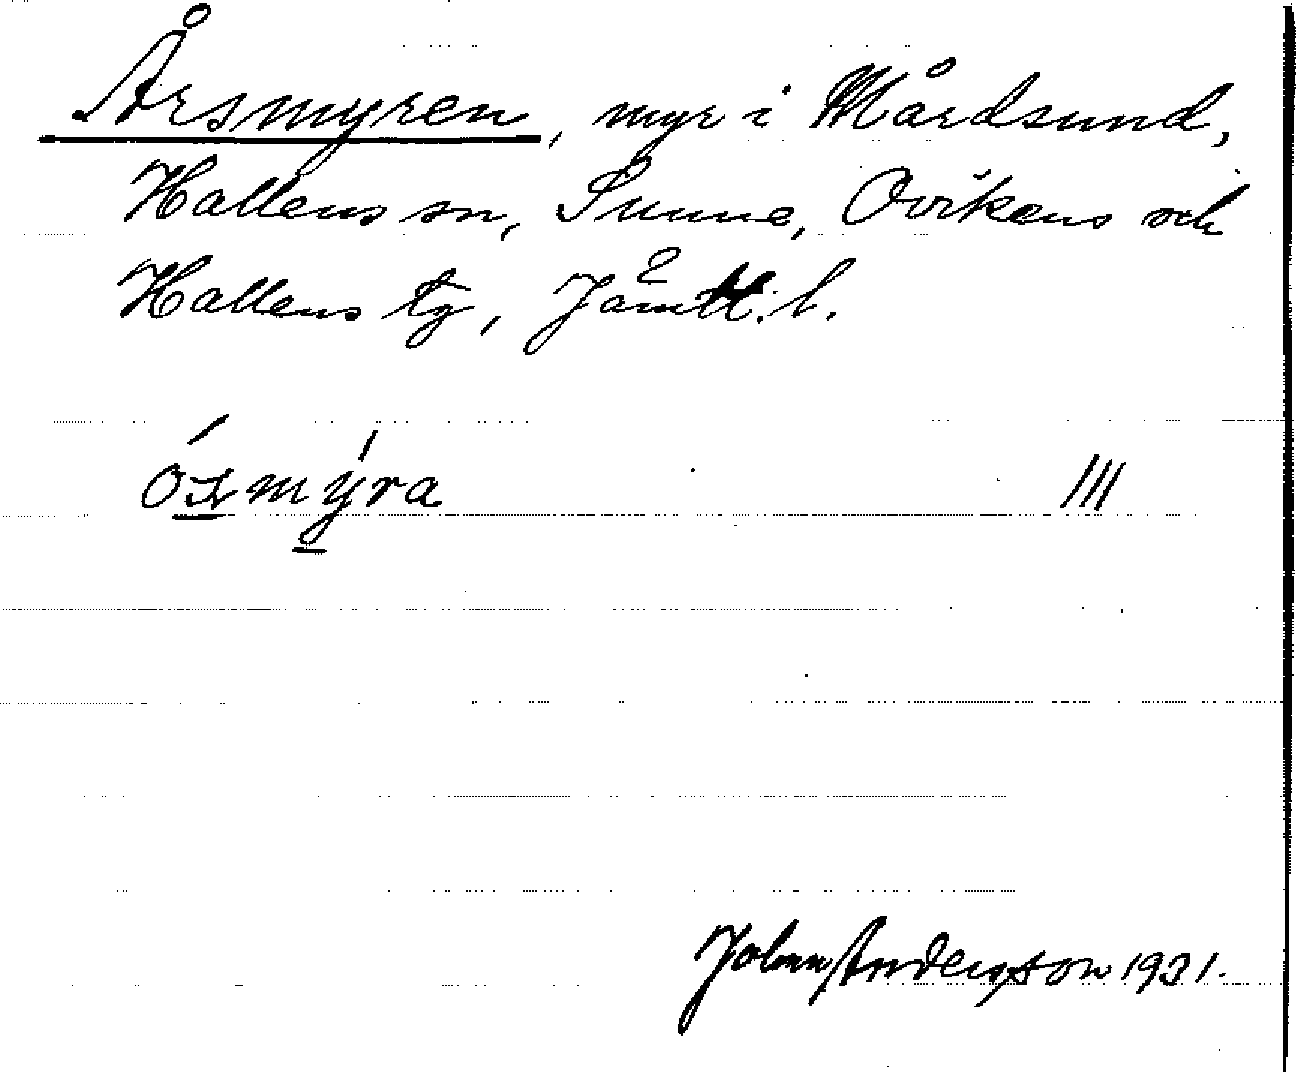 Årsmyren, myr i Mårdsund,
Hallens sn, Sunne, Ovikens och
Hallens tg, Jämtl. l.
ósmýra III
Johan Andersson 1931.